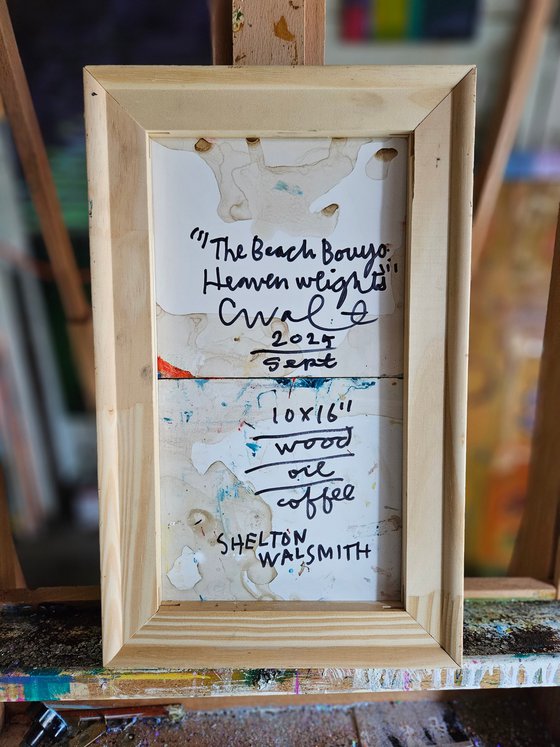 "The Beach Bouys:
Heaven weights"
CWal
2025
Sept
10x16"
wood
oil
coffee
SHELTON
WALSMITH